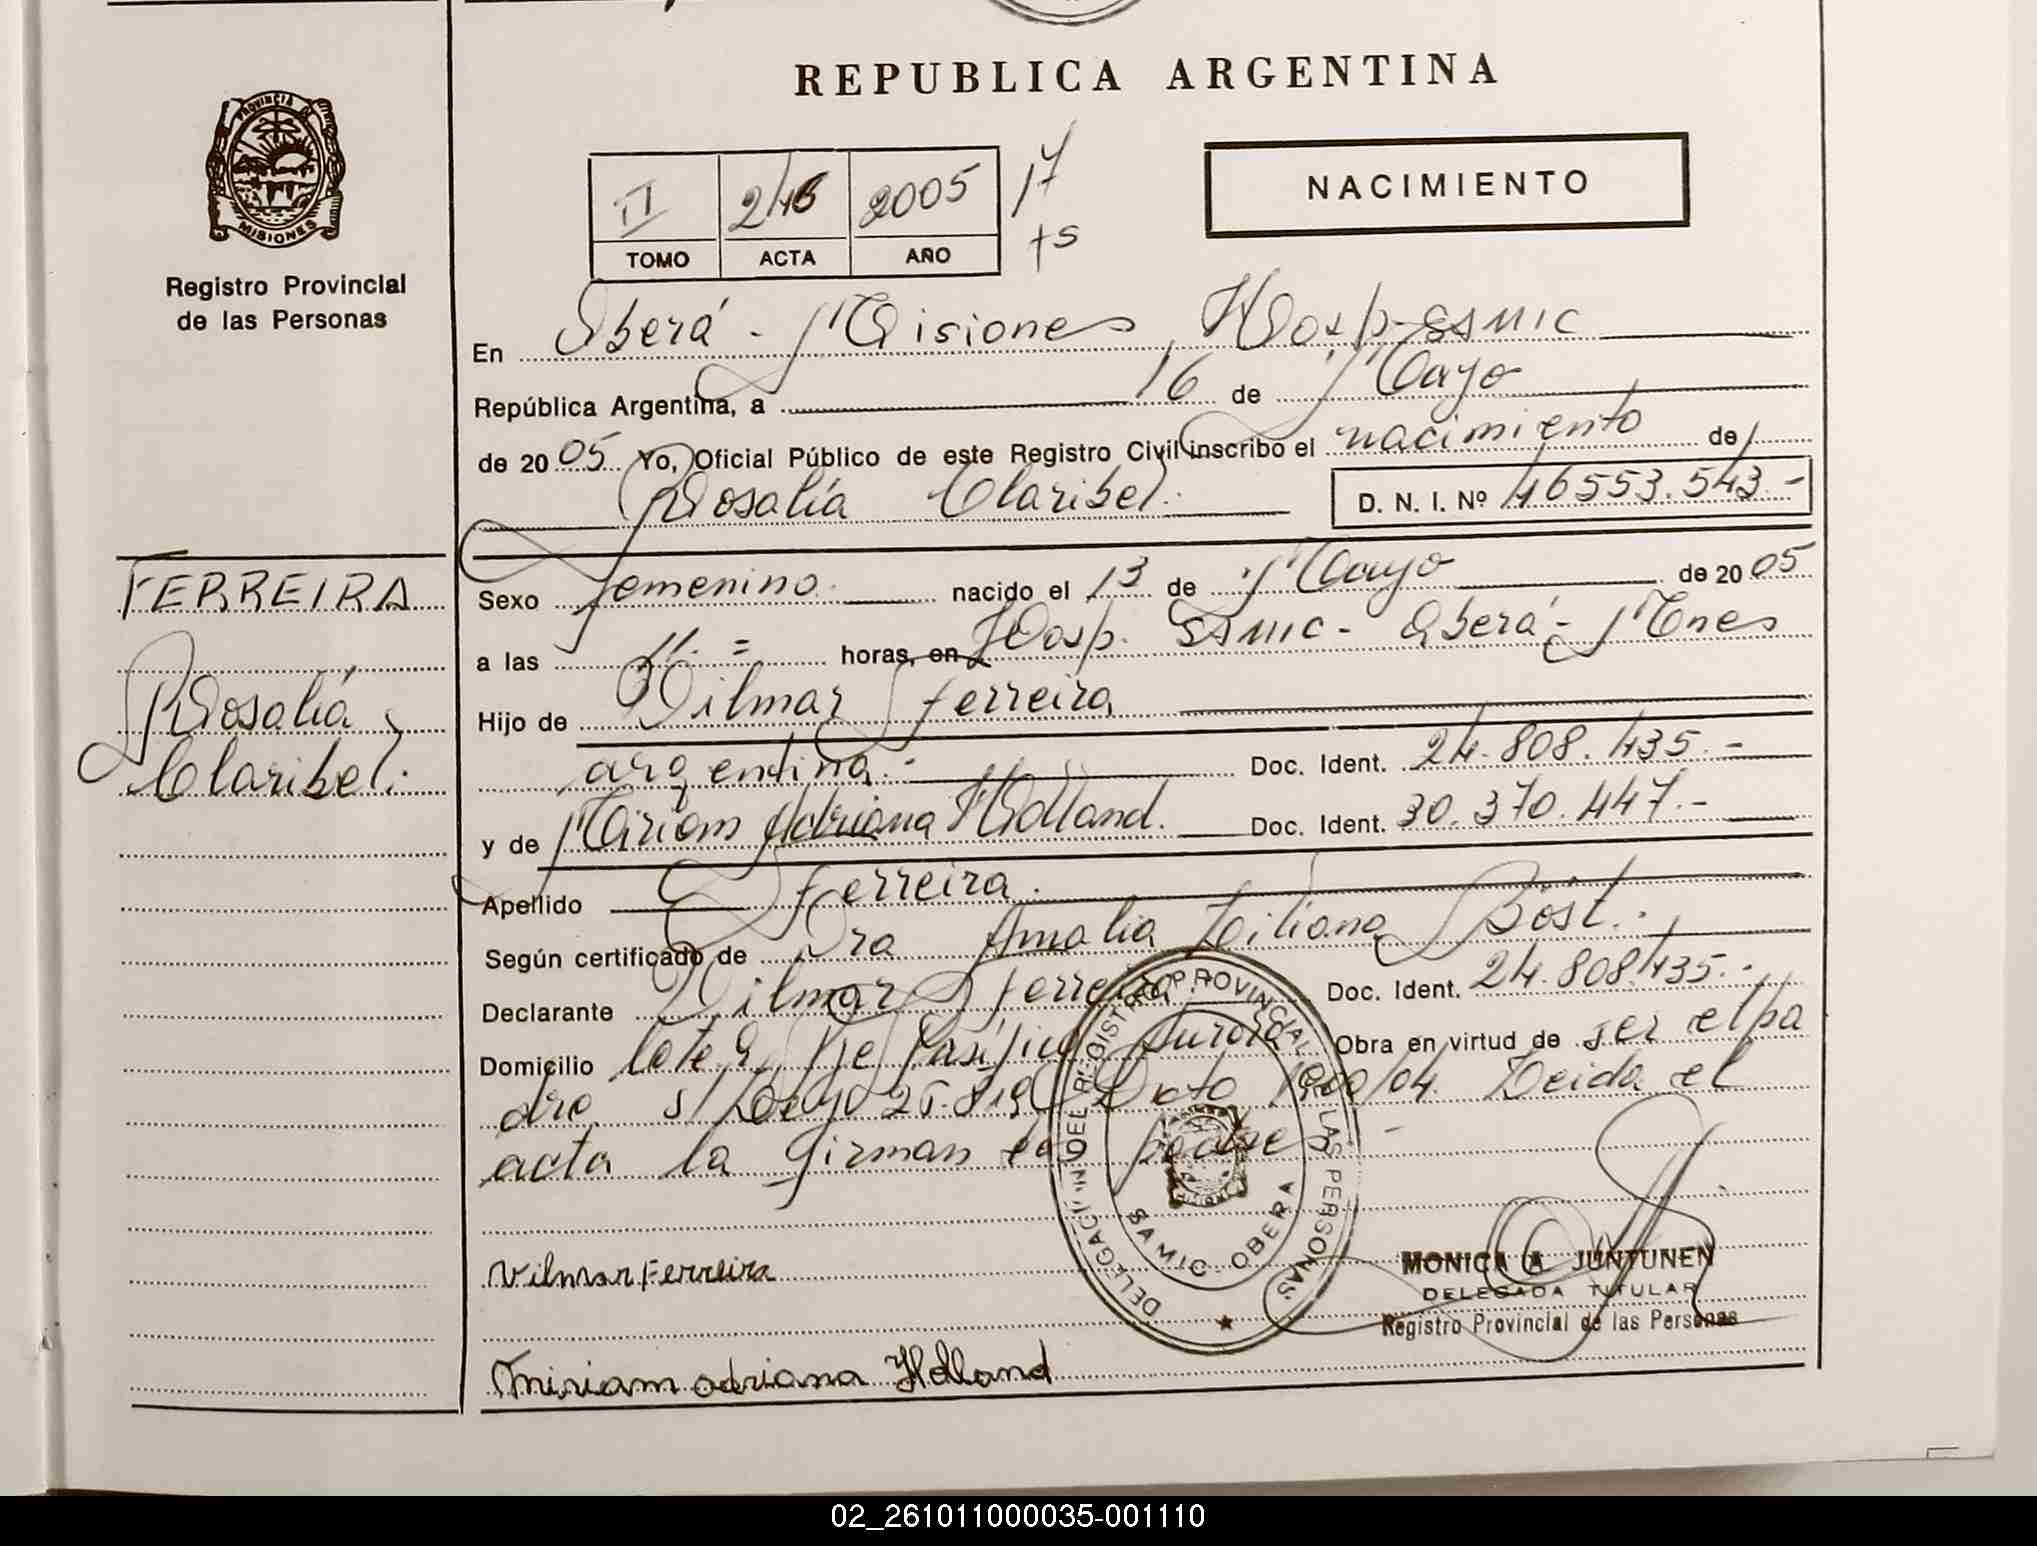 REPUBLICA ARGENTINA
PROVINCIA DE
MISIONES
Registro Provincial
de las Personas
II 246 2005 17
TOMO ACTA AÑO
NACIMIENTO
En Oberá - Misiones, Hosp-SSMIC
República Argentina, a 16 de Mayo
de 2005 Yo, Oficial Público de este Registro Civil inscribo el nacimiento de
Rosalía Claribel. D. N. I. Nº 46553.543.-
FERREIRA
Rosalía
Claribel.
Sexo femenino. nacido el 13 de Mayo de 2005
a las 11.= horas, en Hosp. SSMIC- Oberá- Mnes
Hijo de Vilmar Ferreira
argentina.- Doc. Ident. 24.808.435.-
y de Miriam Adriana Holland. Doc. Ident. 30.370.447.-
Apellido Ferreira.
Según certificado de Dra Amalia Böst.
Declarante Vilmar Ferreira Doc. Ident. 24.808.435.-
Domicilio lote 9, Aurora Obra en virtud de ser el pa
dre s/ Dcto 1900/04. Leida el
acta la firman los padres -
DELEGACIÓN DEL REGISTRO PROVINCIAL DE LAS PERSONAS
SAMIC OBERA
Vilmar Ferreira
MONICA A JUNTUNEN
DELEGADA TITULAR
Registro Provincial de las Personas
Miriam adriana Holland
02_261011000035-001110